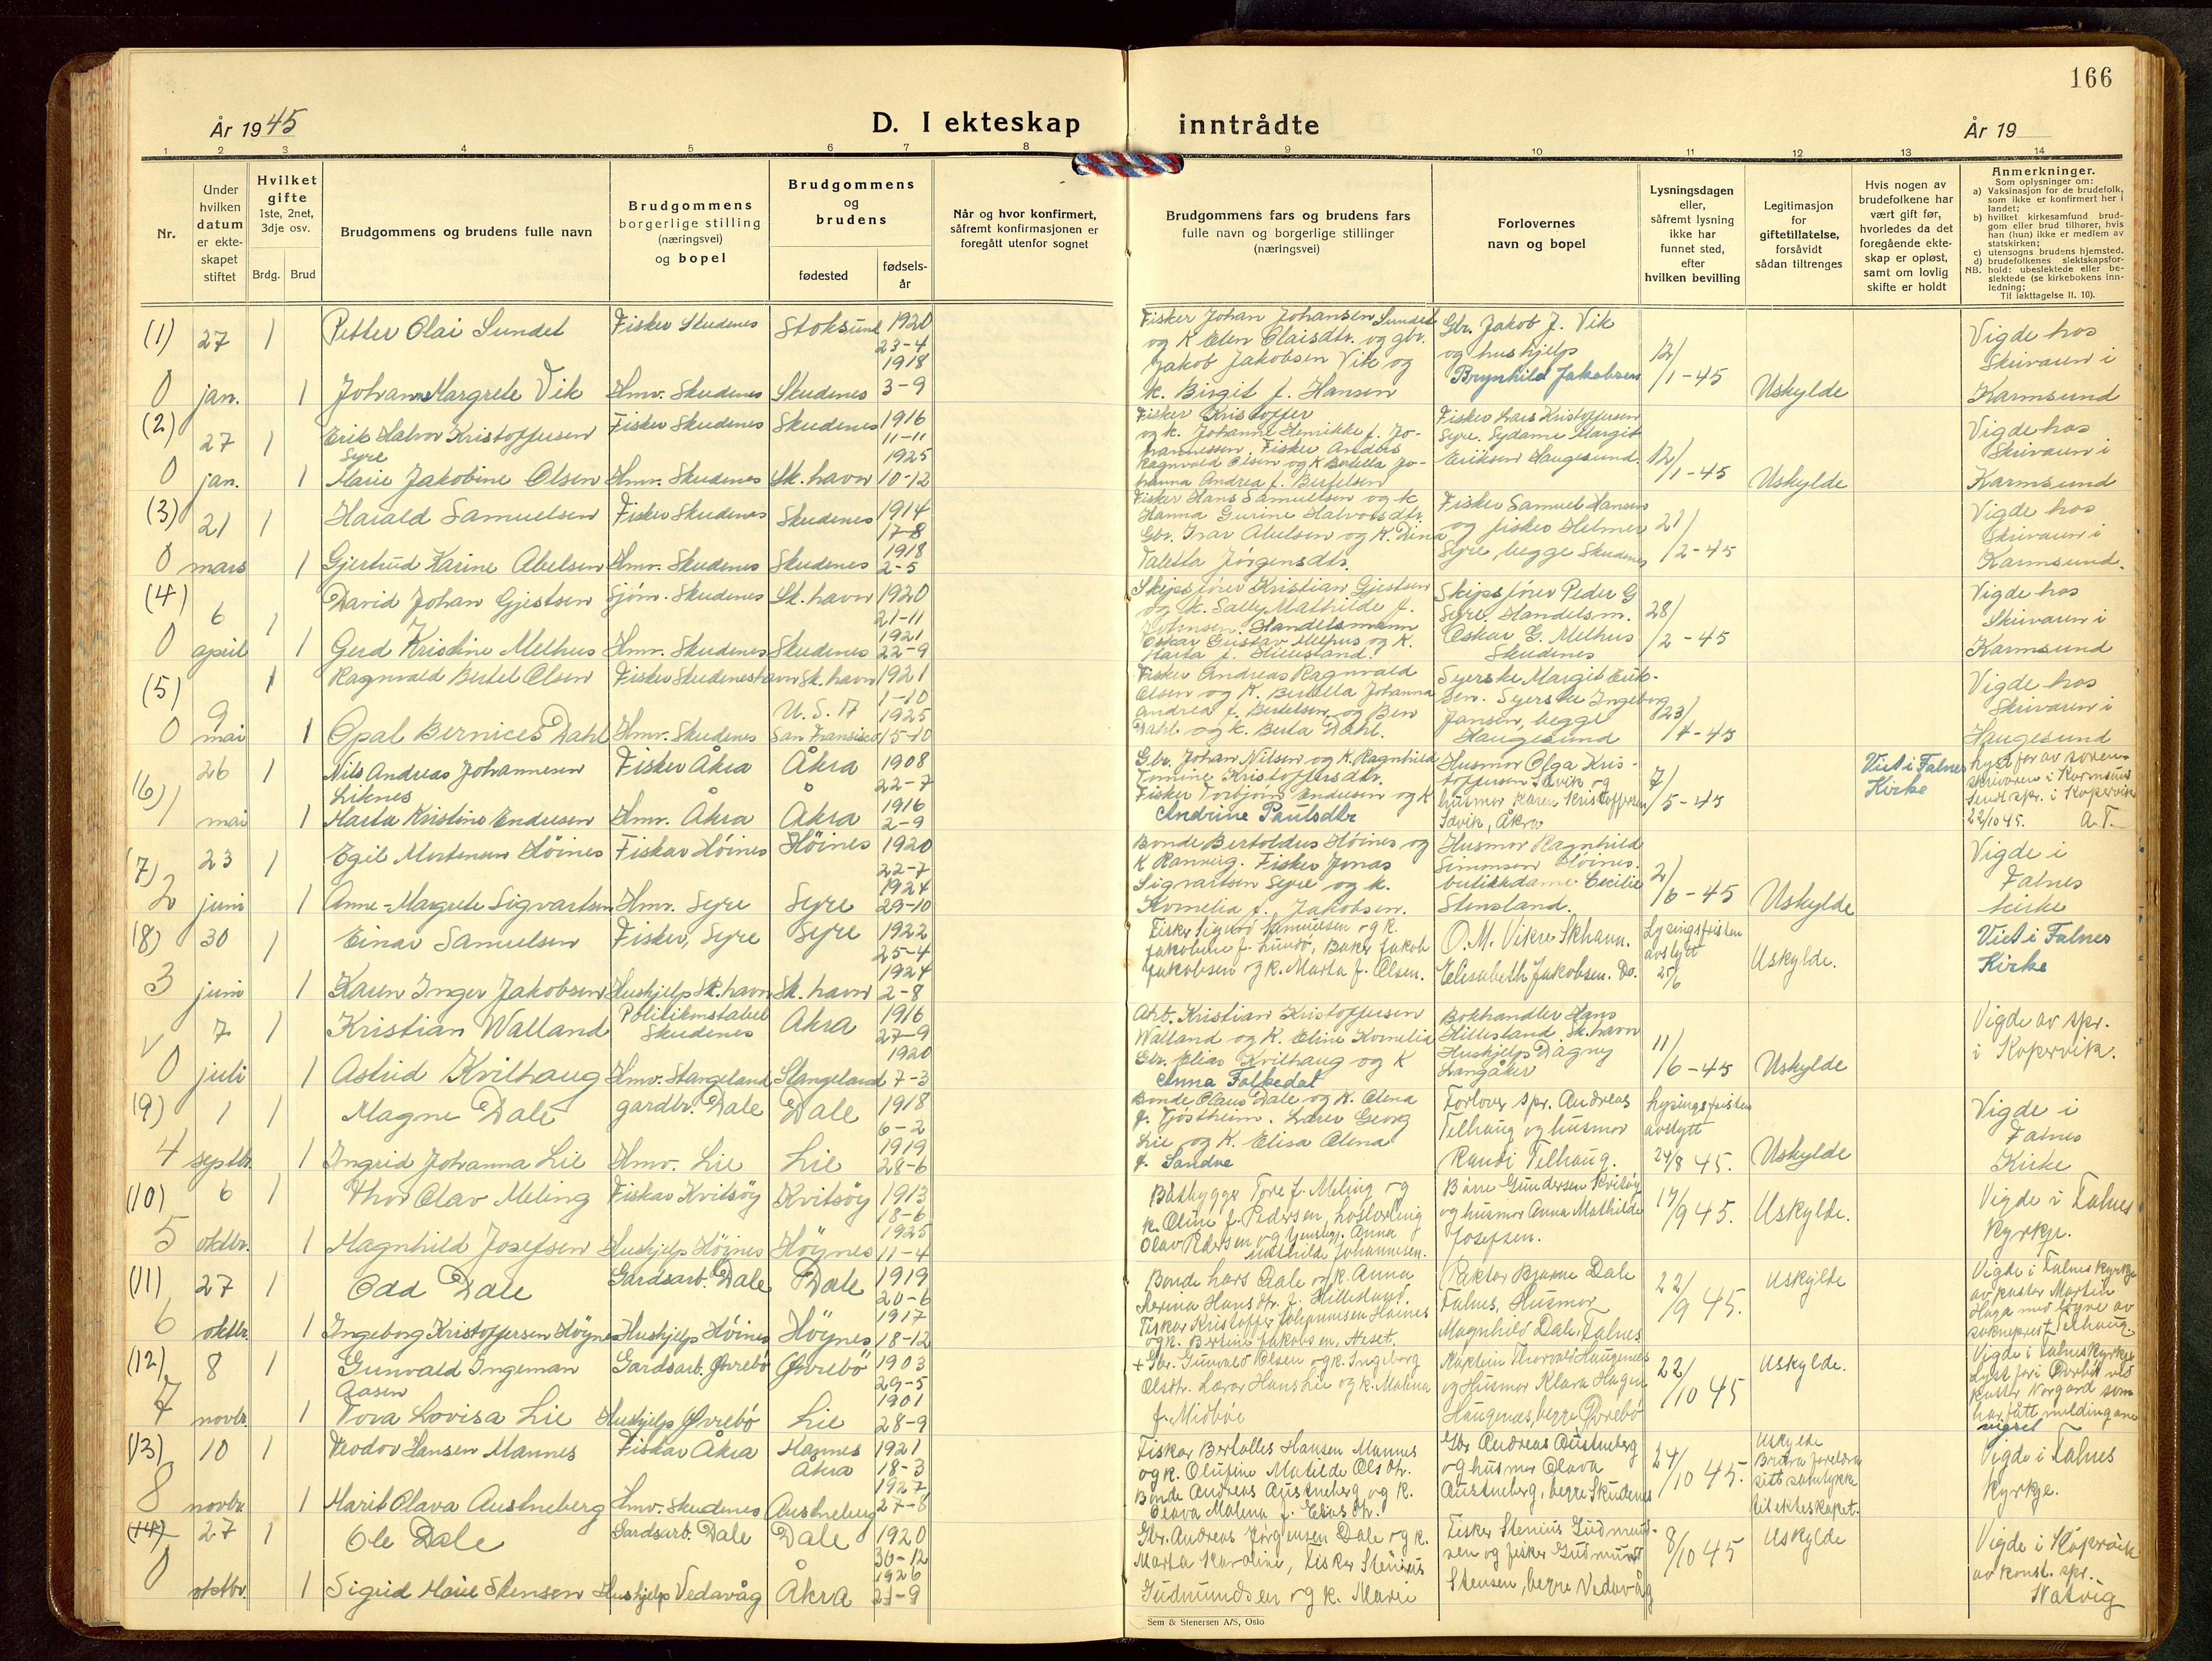 166
År 1945
D. I ekteskap inntrådte
År 19
1 2 3 4 5 6 7 8 9 10 11 12 13 14
Nr.
Under
hvilken
datum
er ekte-
skapet
stiftet
Hvilket
gifte
1ste, 2net,
3dje osv.
Brdg. Brud
Brudgommens og brudens fulle navn
Brudgommens
borgerlige stilling
(næringsvei)
og bopel
Brudgommens
og
brudens
fødested
fødsels-
år
Når og hvor konfirmert,
såfremt konfirmasjonen er
foregått utenfor sognet
Brudgommens fars og brudens fars
fulle navn og borgerlige stillinger
(næringsvei)
Forlovernes
navn og bopel
Lysningsdagen
eller,
såfremt lysning
ikke har
funnet sted,
efter
hvilken bevilling
Legitimasjon
for
giftetillatelse,
forsåvidt
sådan tiltrenges
Hvis nogen av
brudefolkene har
vært gift før,
hvorledes da det
foregående ekte-
skap er opløst,
samt om lovlig
skifte er holdt
Anmerkninger.
Som oplysninger om:
a) Vaksinasjon for de brudefolk,
som ikke er konfirmert her i
landet;
b) hvilket kirkesamfund brud-
gom eller brud tilhører, hvis
han (hun) ikke er medlem av
statskirken;
c) utensogns brudens hjemsted.
d) brudefolkenes slektskapsfor-
NB. hold: ubeslektede eller be-
slektede (se kirkebokens inn-
ledning;
Til iakttagelse II. 10).
(1) 27 1 Petter Olai Sundet Fisker Skudenes Stoksund 1920
23-4
1918
0 jan. 1 Johanne Margrete Vik Hmv. Skudenes Skudenes 3-9
Fisker Johan Johansen Sundet
og K Elen Olaisdtr. og gbr.
Jakob Jakobsen Vik og
k. Birgit f. Hansen
Gbr. Jakob J. Vik
og hushjelp
Brynhild Jakobsen
12/1-45
Uskylde
Vigde hos
Skrivaren i
Karmsund
(2) 27 1 Erik Halvor Kristoffersen Fisker Skudenes Skudenes 1916
Syre 11-11
1925
0 jan. 1 Marie Jakobine Olsen Hmv. Skudenes Sk. havn 10-12
Fisker Kristoffer
og k. Johanne Henrikke f. Jo-
hannessen. Fisker Anders
Ragnvald Olsen og K Bertella Jo-
hanna Andrea f. Bertelsen
Fisker Lars Kristoffersen
Syre. Sydame Margit
Eriksen Haugesund.
12/1-45
Uskylde
Vigde hos
Skrivaren i
Karmsund
(3) 21 1 Harald Samuelsen Fisker Skudenes Skudenes 1914
17-8
1918
0 mars 1 Gjertrud Karine Abelsen Hmv. Skudenes Skudenes 2-5
Fisker Hans Samuelsen og k
Hanna Gurine Halvorsdtr.
Gbr. Ivar Abelsen og K. Dina
Taletta Jörgensdtr.
Fisker Samuel Hansen
og fisker Helmer
Syre, begge Skudenes
21/2-45
Vigde hos
Skrivaren i
Karmsund.
(4) 6 1 David Johan Gjestsen Sjöm. Skudenes Sk. havn 1920
21-11
1921
0 april 1 Gerd Kristine Melhus Hmv. Skudenes Skudenes 22-9
Skipsförer Kristian Gjestsen
og k. Sally Mathilde f.
Johnsen. Handelsmann
Oskar Gustav Melhus og K.
Marta f. Hillesland.
Skipsförer Peder G
Syre. Handelsm.
Oskar G. Melhus
Skudenes
28/2-45
Vigde hos
Skrivaren i
Karmsund
(5) 9 1 Ragnvald Bertel Olsen Fisker Skudeneshavn Sk. havn 1921
1-10
U. S. A 1925
0 mai 1 Opal Bernices Dahl Hmv. Skudenes San Fransisco 15-10
Fisker Andreas Ragnvald
Olsen og K. Bertella Johanna
Andrea f. Bertelsen og Ben
Dahl og k. Berta Dahl.
Syerske Margit Erik-
sen. Syerske Ingeborg
Jansen, begge
Haugesund
23/4-45
Vigde hos
Skrivaren i
Haugesund
(6) 26 1 Nils Andreas Johannesen Fisker Åkra Åkra 1908
Liknes 22-7
1916
1 mai 1 Marta Kristine Endresen Hmv. Åkra Åkra 2-9
Gbr. Johan Nilsen og K. Ragnhild
Tomine Kristoffersdtr.
Fisker Torbjörn Endresen og K
Andrine Paulsdtr
Husmor Olga Kris-
toffersen Sævik og
husmor Karen Kristoffersen
Sævik, Åkra
7/5-45
Viet i Falnes
Kirke
lyst for av soren-
skrivaren i Karmsund
Sendt spr. i Kopervik
22/10 45. A.T.
(7) 23 1 Egil Mortensen Höines Fiskar Höines Höines 1920
22-7
1924
2 juni 1 Anne-Margrete Sigvartsen Hmv. Syre Syre 29-10
Bonde Bertoldus Höines og
K Ranveig. Fisker Jonas
Sigvartsen Syre og k.
Kornelia f. Jakobsen.
Husmor Ragnhild
Simonsen Höines.
butikkdame Cecilie
Stensland.
2/6-45
Uskylde
Vigde i
Falnes
kirke
(8) 30 1 Einar Samuelsen Fisker, Syre Syre 1922
25-4
1924
3 juni 1 Karen Inger Jakobsen Hushjelp Sk. havn Sk. havn 2-8
Fisker Sigurd Samuelsen og k.
Jakobine f. Lundö, Baker Jakob
Jakobsen og k. Marta f. Olsen.
O. M. Vikre Skhavn.
Elisabeth Jakobsen. Do.
Lysingsfristen
avslytt
25/6
Uskylde.
Viet i Falnes
Kirke
v 7 1 Kristian Walland Politikonstabel Åkra 1916
Skudenes 27-9
1920
0 juli 1 Astrid Kvilhaug Hmv. Stangeland Stangeland 7-3
Arb. Kristian Kristoffersen
Walland og K. Eline Kornelia
Gbr. Elias Kvilhaug og K
Anna Falkedal
Bokhandler Hans
Hillesland Sk. havn
Hushjelp Dagny
Langåker
11/6-45
Uskylde
Vigde av spr.
i Kopervik.
(9) 1 1 Magne Dale gardbr. Dale Dale 1918
6-2
1919
4 septbr. 1 Ingrid Johanna Lie Hmv. Lie Lie 28-6
Bonde Olaus Dale og K. Olena
f. Tjöstheim. Lærer Georg
Lie og K. Elisa Olena
f. Sandve
Forlover spr. Andreas
Telhaug og husmor
Randi Telhaug.
Lysingsfristen
avslytt
24/8 45.
Uskylde
Vigde i
Falnes
Kirke
(10) 6 1 Thor Olav Meling Fiskar Kvitsöy Kvitsöy 1913
18-6
1925
5 oktbr. 1 Magnhild Josefsen Hushjelp Höynes Höynes 11-4
Båtbygger Tore J. Meling og
k. Oline f. Pedersen, loslærling
Olav Pedersen og tjenestepi. Anna
Mathilde Johannesen.
Börre Gundersen Kvitsöy
og husmor Anna Mathilde
Josefsen.
17/9 45.
Uskylde.
Vigde i Falnes
kyrkje.
(11) 27 1 Odd Dale Gardsarb. Dale Dale 1919
20-6
1917
6 oktbr. 1 Ingeborg Kristoffersen Höynes Hushjelp Höines Höynes 18-12
Bonde Lars Dale og K. Anna
Serina Hansdtr. f. Hillesland.
Fiskar Kristoffer Johannesen Höines
og k. Bertine Jakobsen, Aeset.
Rektor Bjarne Dale
Falnes, Husmor
Magnhild Dale, Falnes
22/9 45.
Uskylde
Vigde i Falnes kyrkje
av pastor Martin
Haga med löyve av
sokneprest Telhaug.
(12) 8 1 Gunvald Ingeman Gardsarb. Övrebö Övrebö 1903
Aasen 29-5
1901
7 novbr. 1 Tora Lovisa Lie Hushjelp Övrebö Lie 28-9
+ Gbr. Gunvald Olsen og k. Ingeborg
Olsdtr. Lærar Hans Lie og k. Malena
f. Midböe
Kaptein Thorvald Haugenes
og Husmor Klara Hagen
Haugenæs, begge Övrebö
22/10 45
Uskylde.
Vigde i Falnes kyrkje
Lyst for i Övrebö ved
pastor Norgård som
har fått melding om
vigsel
(13) 10 1 Teodor Hansen Mannes Fiskar Åkra Mannes 1921
Åkra 18-3
1927
8 novbr. 1 Marit Olava Austneberg Hmv. Skudenes Austneberg 27-8
Fiskar Bertolles Hansen Mannes
og k. Olufine Matilde Olsdtr.
Bonde Andreas Austneberg og k.
Olava Malena f. Eliasdtr.
Gbr Andreas Austneberg
og husmor Olava
Austneberg, begge Skudenes
24/10 45.
Uskylde
Brura foreldra
sitt samtykke
til ekteskapet.
Vigde i Falnes
kyrkje.
(14) 27 1 Ole Dale Gardsarb. Dale Dale 1920
30-12
1926
0 oktbr. 1 Sigrid Marie Stensen Hushjelp Vedavåg Åkra 21-9
Gbr. Andreas Jörgensen Dale og k.
Marta Karoline, Fisker Stenius
Gudmundsen og k. Marie
Fisker Stenius Gudmund-
sen og fisker Gudmund
Stensen, begge Vedavåg
8/10 45
Uskylde
Vigde i Kopervik
av konst. spr.
Natvig
Sem & Stenersen A/S, Oslo